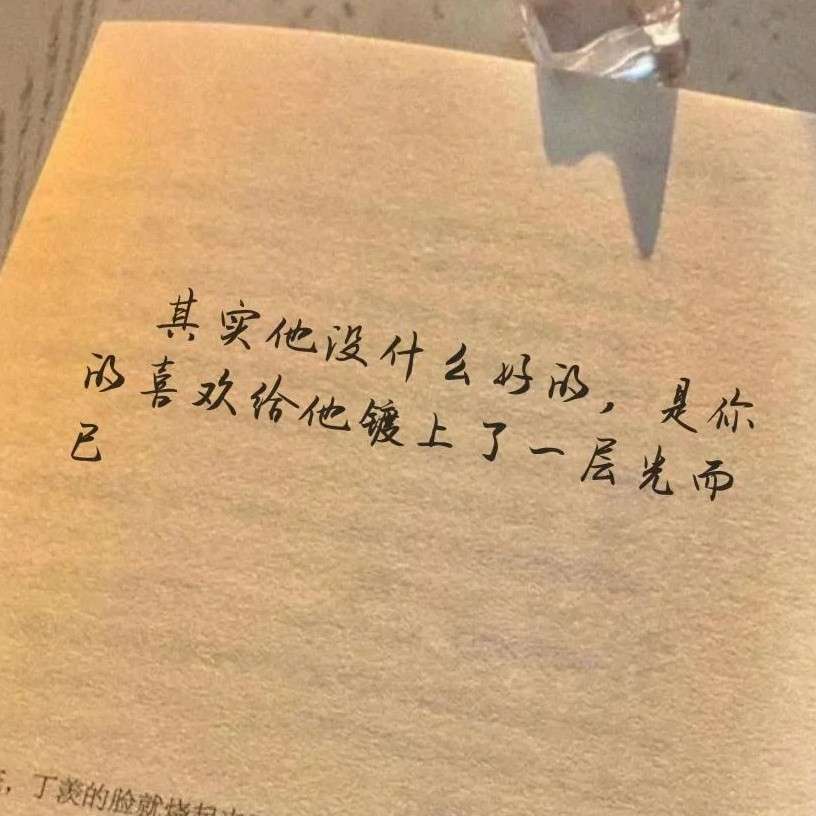 其实他没什么好的，是你
的喜欢给他镀上了一层光而
已
，丁羡的脸就烧起